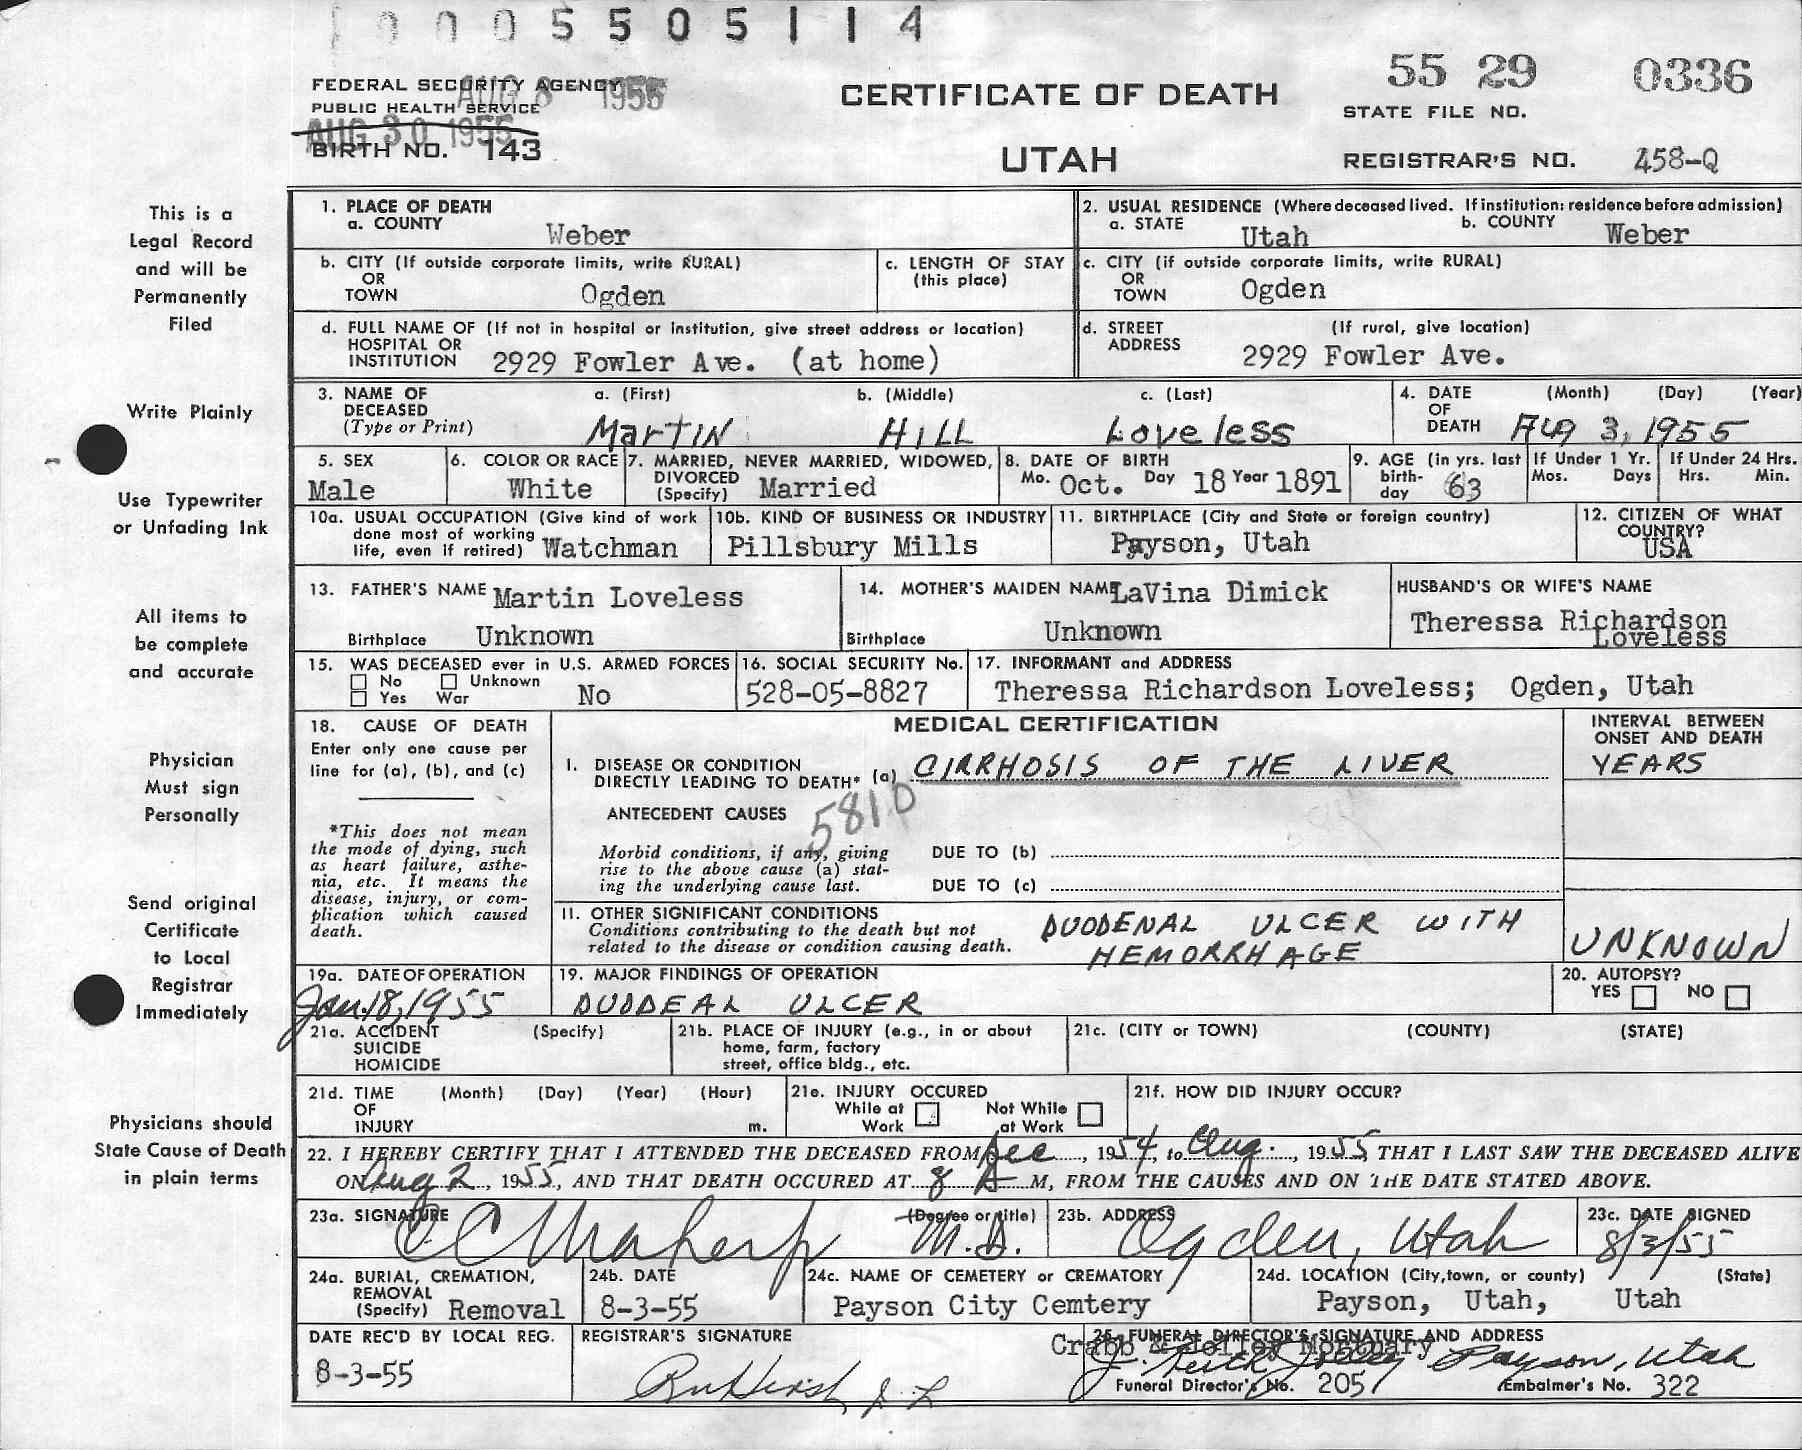 0005505114
FEDERAL SECURITY AGENCY AUG 8 1955
PUBLIC HEALTH SERVICE
AUG 30 1955
BIRTH NO. 143
CERTIFICATE OF DEATH
UTAH
55 29 0336
STATE FILE NO.
REGISTRAR'S NO. 458-Q
This is a
Legal Record
and will be
Permanently
Filed
Write Plainly
Use Typewriter
or Unfading Ink
All items to
be complete
and accurate
Physician
Must sign
Personally
Send original
Certificate
to Local
Registrar
Immediately
Physicians should
State Cause of Death
in plain terms
1. PLACE OF DEATH
a. COUNTY Weber
2. USUAL RESIDENCE (Where deceased lived. If institution: residence before admission)
a. STATE Utah b. COUNTY Weber
b. CITY (If outside corporate limits, write RURAL)
OR
TOWN Ogden
c. LENGTH OF STAY
(this place)
c. CITY (if outside corporate limits, write RURAL)
OR
TOWN Ogden
d. FULL NAME OF (If not in hospital or institution, give street address or location)
HOSPITAL OR
INSTITUTION 2929 Fowler Ave. (at home)
d. STREET (If rural, give location)
ADDRESS 2929 Fowler Ave.
3. NAME OF a. (First) b. (Middle) c. (Last)
DECEASED
(Type or Print) MARTIN HILL Loveless
4. DATE (Month) (Day) (Year)
OF
DEATH AUG 3, 1955
5. SEX
Male
6. COLOR OR RACE
White
7. MARRIED, NEVER MARRIED, WIDOWED,
DIVORCED
(Specify) Married
8. DATE OF BIRTH
Mo. Oct. Day 18 Year 1891
9. AGE (in yrs. last
birth-
day 63
If Under 1 Yr.
Mos. Days
If Under 24 Hrs.
Hrs. Min.
10a. USUAL OCCUPATION (Give kind of work
done most of working
life, even if retired) Watchman
10b. KIND OF BUSINESS OR INDUSTRY
Pillsbury Mills
11. BIRTHPLACE (City and State or foreign country)
Payson, Utah
12. CITIZEN OF WHAT
COUNTRY?
USA
13. FATHER'S NAME Martin Loveless
Birthplace Unknown
14. MOTHER'S MAIDEN NAME LaVina Dimick
Birthplace Unknown
HUSBAND'S OR WIFE'S NAME
Theressa Richardson
Loveless
15. WAS DECEASED ever in U.S. ARMED FORCES
No Unknown
Yes War No
16. SOCIAL SECURITY No.
528-05-8827
17. INFORMANT and ADDRESS
Theressa Richardson Loveless; Ogden, Utah
18. CAUSE OF DEATH
Enter only one cause per
line for (a), (b), and (c)
*This does not mean
the mode of dying, such
as heart failure, asthe-
nia, etc. It means the
disease, injury, or com-
plication which caused
death.
MEDICAL CERTIFICATION
INTERVAL BETWEEN
ONSET AND DEATH
I. DISEASE OR CONDITION
DIRECTLY LEADING TO DEATH* (a) CIRRHOSIS OF THE LIVER YEARS
5810
ANTECEDENT CAUSES
Morbid conditions, if any, giving
rise to the above cause (a) stat-
ing the underlying cause last.
DUE TO (b)
DUE TO (c)
II. OTHER SIGNIFICANT CONDITIONS
Conditions contributing to the death but not
related to the disease or condition causing death.
DUODENAL ULCER WITH
HEMORRHAGE
UNKNOWN
19a. DATE OF OPERATION
Jan. 18, 1955
19. MAJOR FINDINGS OF OPERATION
DUODEAL ULCER
20. AUTOPSY?
YES NO
21a. ACCIDENT (Specify)
SUICIDE
HOMICIDE
21b. PLACE OF INJURY (e.g., in or about
home, farm, factory
street, office bldg., etc.
21c. (CITY or TOWN) (COUNTY) (STATE)
21d. TIME (Month) (Day) (Year) (Hour)
OF
INJURY m.
21e. INJURY OCCURED
While at Work Not While at Work
21f. HOW DID INJURY OCCUR?
22. I HEREBY CERTIFY THAT I ATTENDED THE DECEASED FROM Dec, 1954, to Aug., 1955, THAT I LAST SAW THE DECEASED ALIVE
ON Aug 2, 1955, AND THAT DEATH OCCURED AT 8 A M, FROM THE CAUSES AND ON THE DATE STATED ABOVE.
23a. SIGNATURE (Degree or title)
M.D.
23b. ADDRESS
Ogden, Utah
23c. DATE SIGNED
8/3/55
24a. BURIAL, CREMATION,
REMOVAL
(Specify) Removal
24b. DATE
8-3-55
24c. NAME OF CEMETERY or CREMATORY
Payson City Cemtery
24d. LOCATION (City, town, or county) (State)
Payson, Utah, Utah
DATE REC'D BY LOCAL REG.
8-3-55
REGISTRAR'S SIGNATURE
25. FUNERAL DIRECTOR'S SIGNATURE AND ADDRESS
Crabb & Jolley Mortuary
J. Keith Jolley Payson, Utah
Funeral Director's No. 205 Embalmer's No. 322